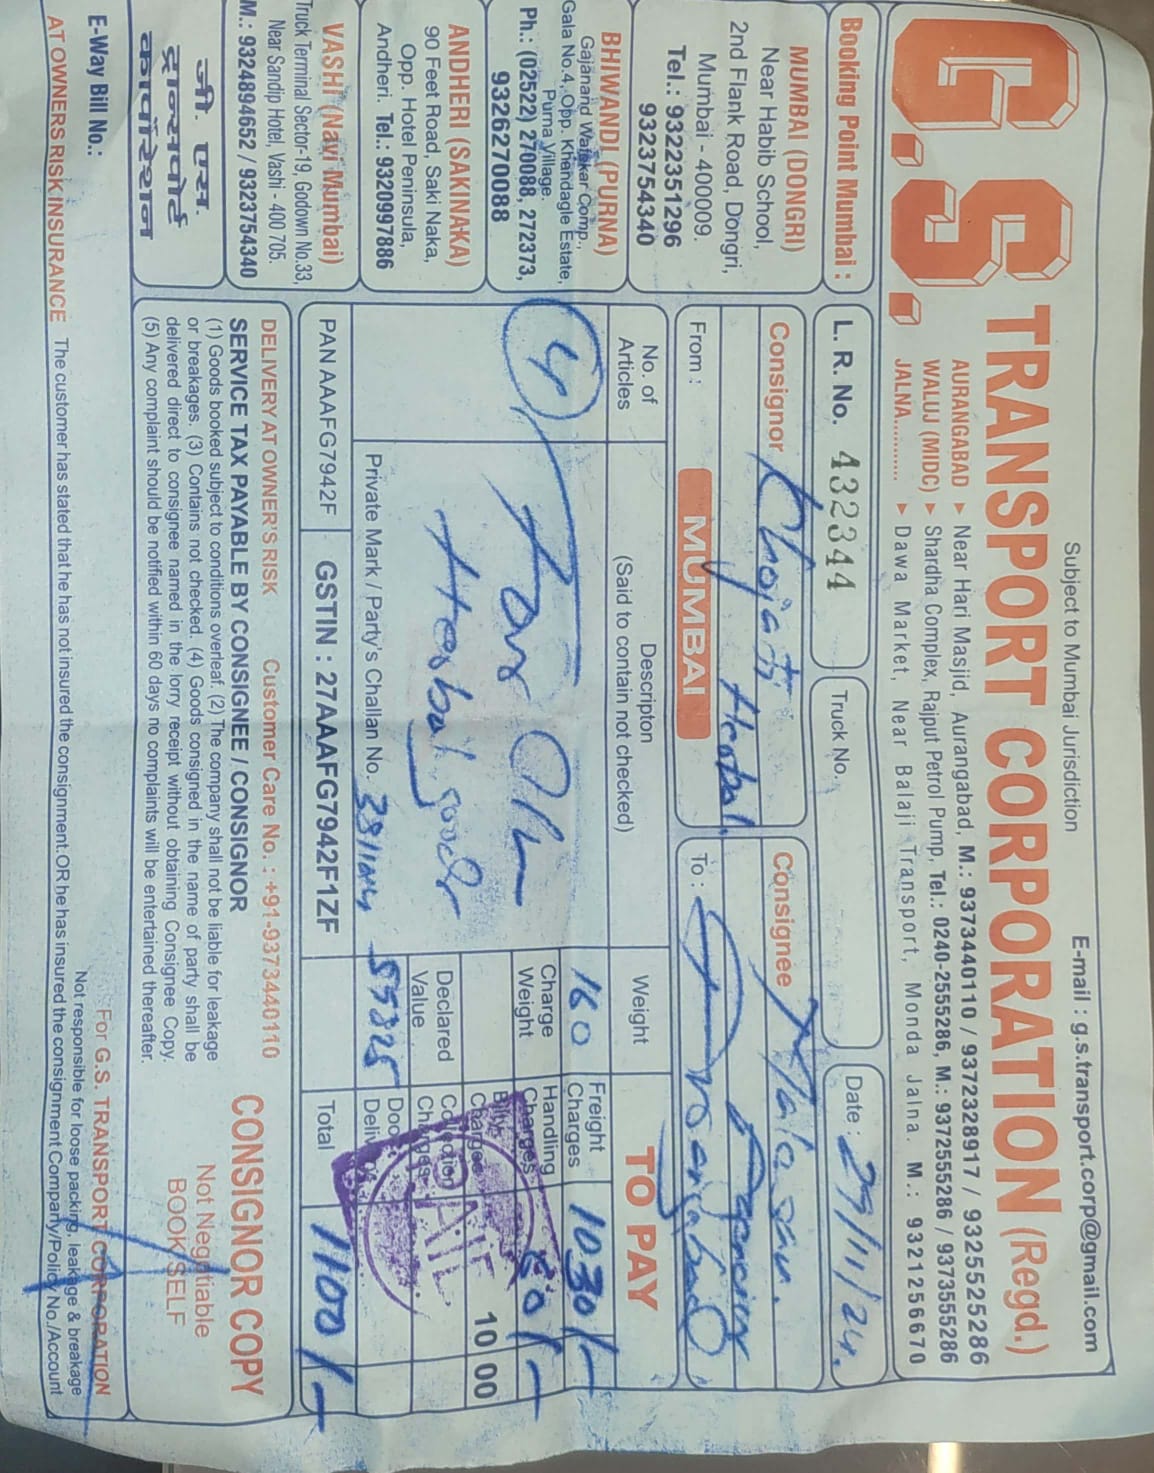 Subject to Mumbai Jurisdiction
E-mail : g.s.transport.corp@gmail.com
G.S. TRANSPORT CORPORATION (Regd.)
AURANGABAD ▸ Near Hari Masjid, Aurangabad, M.: 9373440110 / 9372328917 / 9325525286
WALUJ (MIDC) ▸ Shardha Complex, Rajput Petrol Pump, Tel.: 0240-2555286, M.: 9372555286 / 9373555286
JALNA........... ▸ Dawa Market, Near Balaji Transport, Monda Jalna. M.: 9321256670
Booking Point Mumbai :
L. R. No. 432344
Truck No.
Date : 29/11/24.
MUMBAI (DONGRI)
Near Habib School,
2nd Flank Road, Dongri,
Mumbai - 400009.
Tel.: 9322351296
9323754340
Consignor Khojati
Herbal.
From : MUMBAI
Consignee
Agency
To :
BHIWANDI (PURNA)
Gajanand Watekar Comp.,
Gala No.4, Opp. Khandagle Estate,
Purna Village.
Ph.: (02522) 270088, 272373,
9326270088
ANDHERI (SAKINAKA)
90 Feet Road, Saki Naka,
Opp. Hotel Peninsula,
Andheri. Tel.: 9320997886
VASHI (Navi Mumbai)
Truck Terminal Sector-19, Godown No.33,
Near Sandip Hotel, Vashi - 400 705.
M.: 9324894652 / 9323754340
No. of Articles
Descripton
(Said to contain not checked)
Weight
TO PAY
4
Herbal goods
160
Charge Weight
Declared Value
55325
Freight Charges 1030/-
Handling Charges 60/-
Charges 10 00
Collection Charges
Total 1100/-
Private Mark / Party's Challan No.
PAN AAAFG7942F
GSTIN : 27AAAFG7942F1ZF
जी. एस.
ट्रान्सपोर्ट
कार्पोरेशन
DELIVERY AT OWNER'S RISK Customer Care No. : +91-9373440110
SERVICE TAX PAYABLE BY CONSIGNEE / CONSIGNOR
(1) Goods booked subject to conditions overleaf. (2) The company shall not be liable for leakage
or breakages. (3) Contains not checked. (4) Goods consigned in the name of party shall be
delivered direct to consignee named in the lorry receipt without obtaining Consignee Copy.
(5) Any complaint should be notified within 60 days no complaints will be entertained thereafter.
CONSIGNOR COPY
Not Negotiable
BOOK SELF
E-Way Bill No.:
For G.S. TRANSPORT CORPORATION
Not responsible for loose packing, leakage & breakage
AT OWNERS RISK INSURANCE The customer has stated that he has not insured the consignment.OR he has insured the consignment Company/Policy No./Account